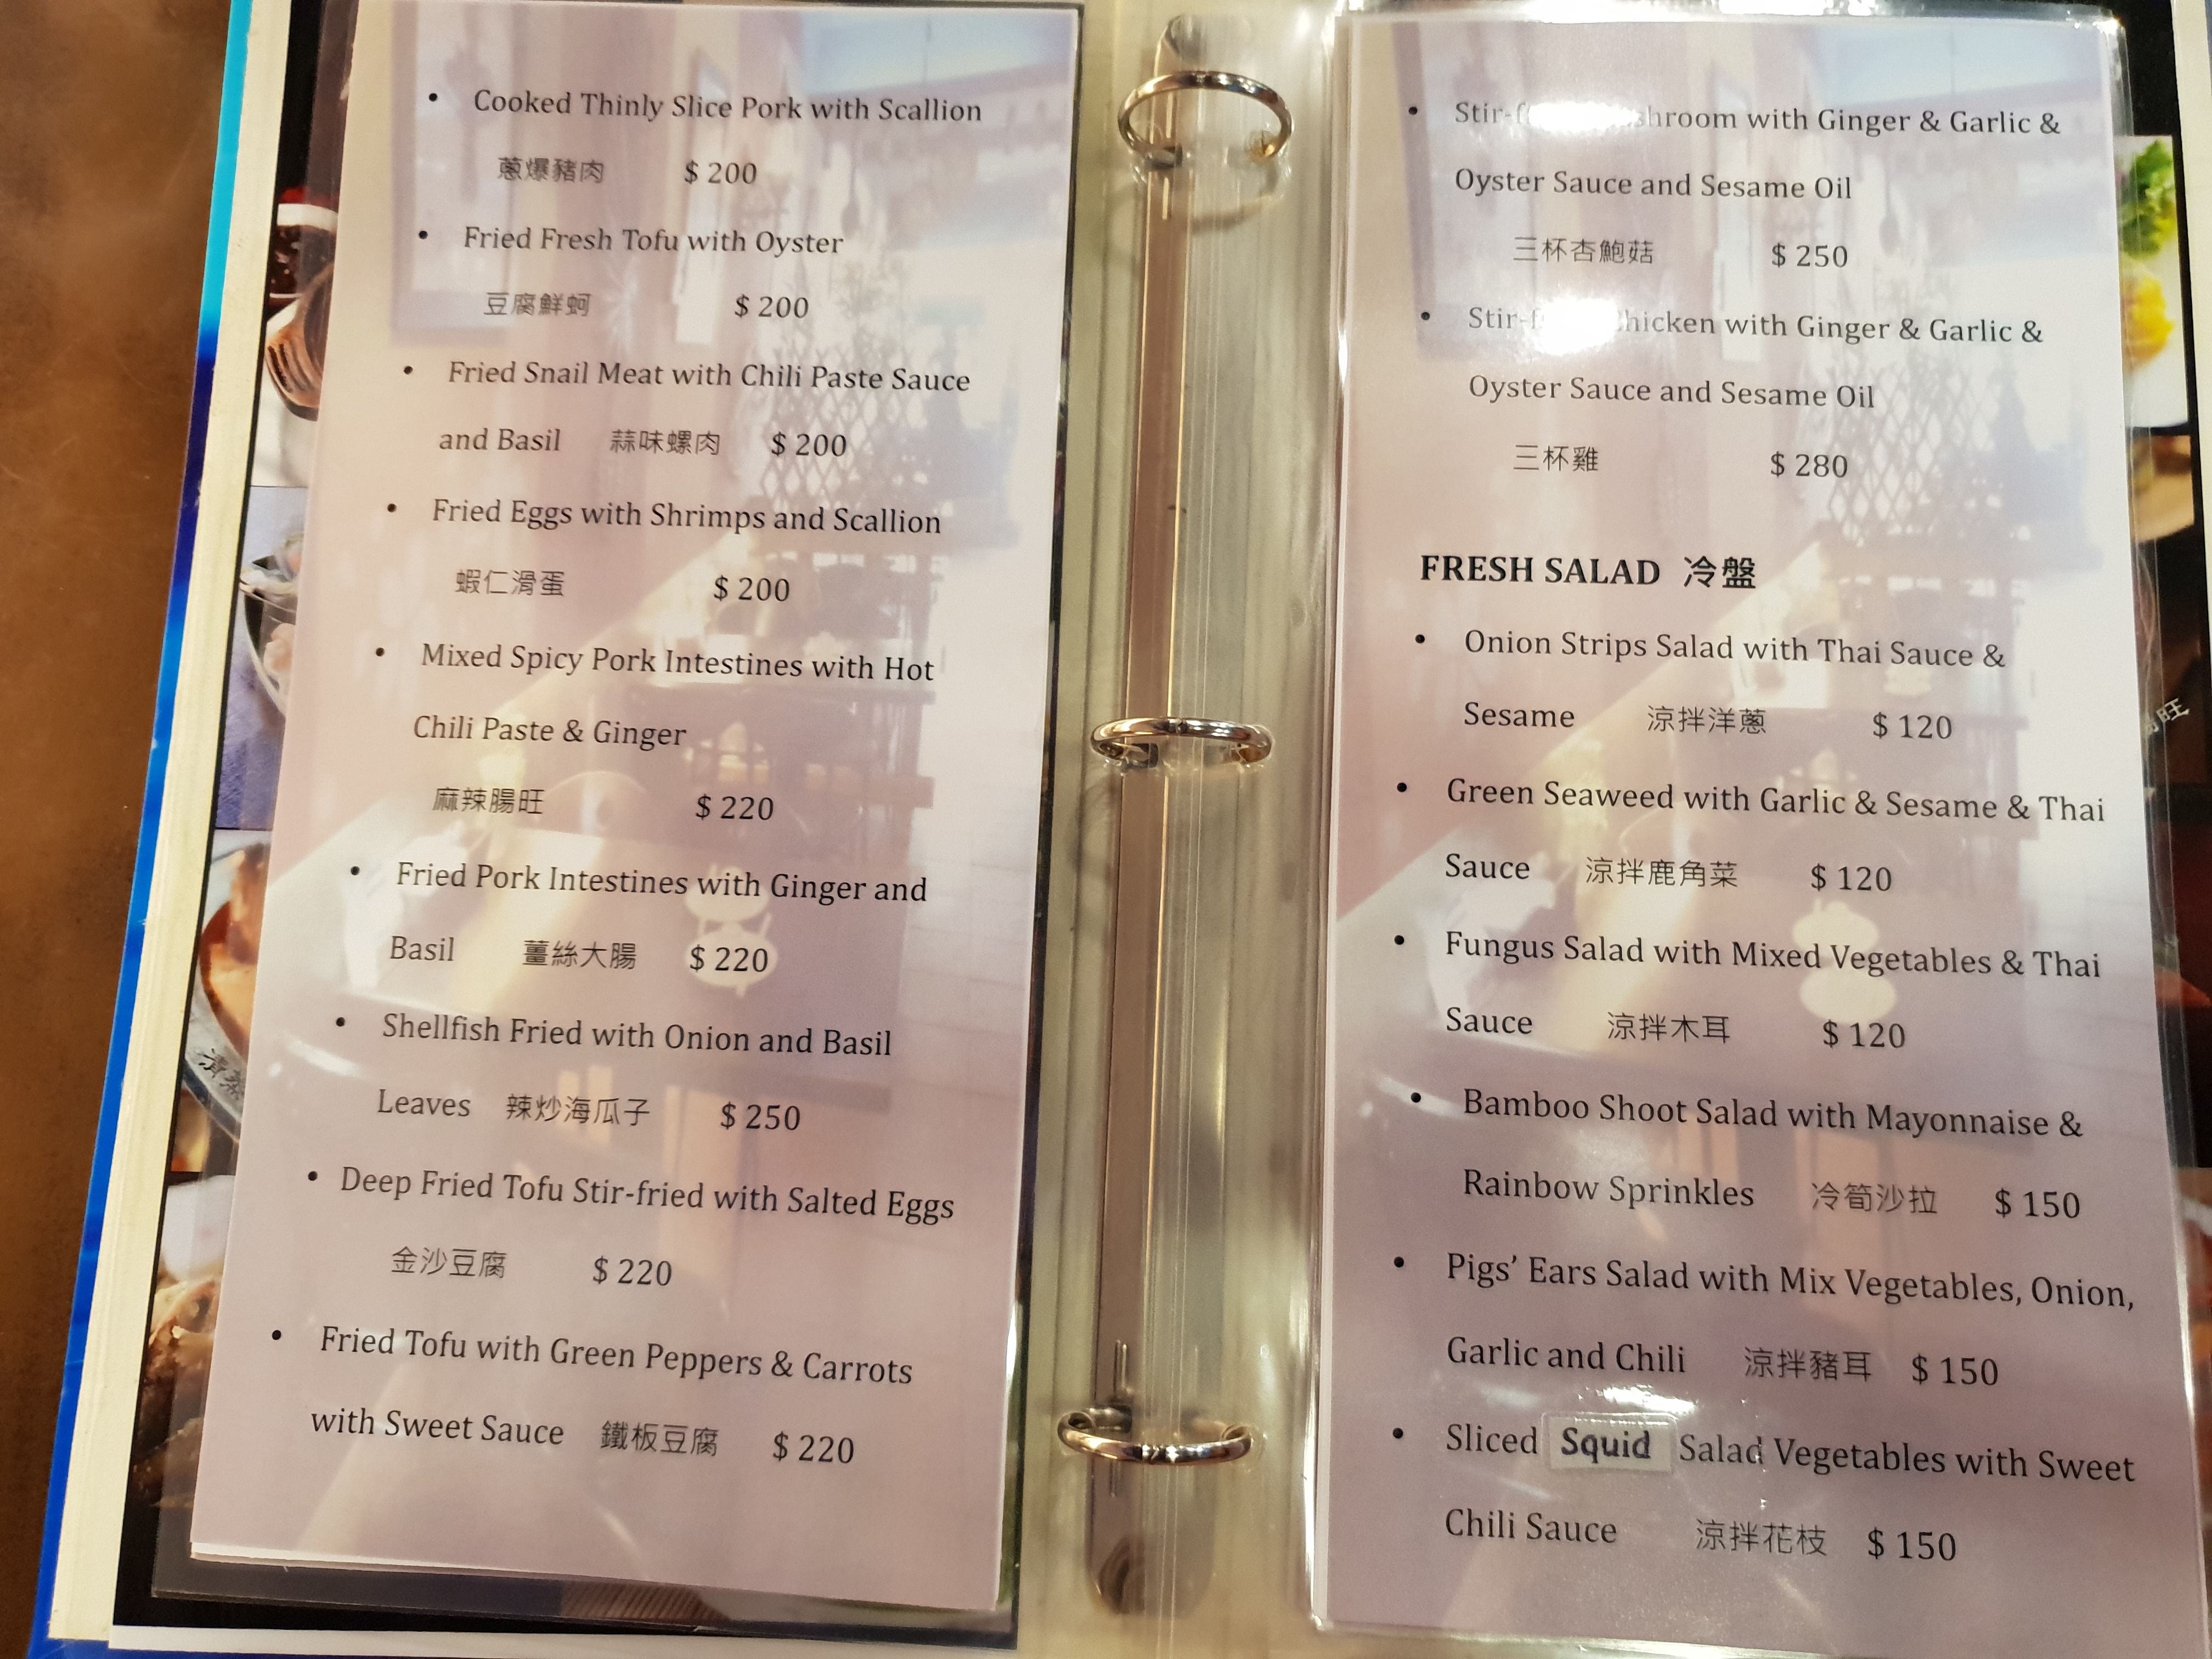 • Cooked Thinly Slice Pork with Scallion
蔥爆豬肉 $ 200
• Fried Fresh Tofu with Oyster
豆腐鮮蚵 $ 200
• Fried Snail Meat with Chili Paste Sauce
and Basil 蒜味螺肉 $ 200
• Fried Eggs with Shrimps and Scallion
蝦仁滑蛋 $ 200
• Mixed Spicy Pork Intestines with Hot
Chili Paste & Ginger
麻辣腸旺 $ 220
• Fried Pork Intestines with Ginger and
Basil 薑絲大腸 $ 220
• Shellfish Fried with Onion and Basil
Leaves 辣炒海瓜子 $ 250
• Deep Fried Tofu Stir-fried with Salted Eggs
金沙豆腐 $ 220
• Fried Tofu with Green Peppers & Carrots
with Sweet Sauce 鐵板豆腐 $ 220
• with Ginger & Garlic &
Oyster Sauce and Sesame Oil
三杯杏鮑菇 $ 250
• with Ginger & Garlic &
Oyster Sauce and Sesame Oil
三杯雞 $ 280
FRESH SALAD 冷盤
• Onion Strips Salad with Thai Sauce &
Sesame 涼拌洋蔥 $ 120
• Green Seaweed with Garlic & Sesame & Thai
Sauce 涼拌鹿角菜 $ 120
• Fungus Salad with Mixed Vegetables & Thai
Sauce 涼拌木耳 $ 120
• Bamboo Shoot Salad with Mayonnaise &
Rainbow Sprinkles 冷筍沙拉 $ 150
• Pigs' Ears Salad with Mix Vegetables, Onion,
Garlic and Chili 涼拌豬耳 $ 150
• Sliced Squid Salad Vegetables with Sweet
Chili Sauce 涼拌花枝 $ 150
旺
清蒸